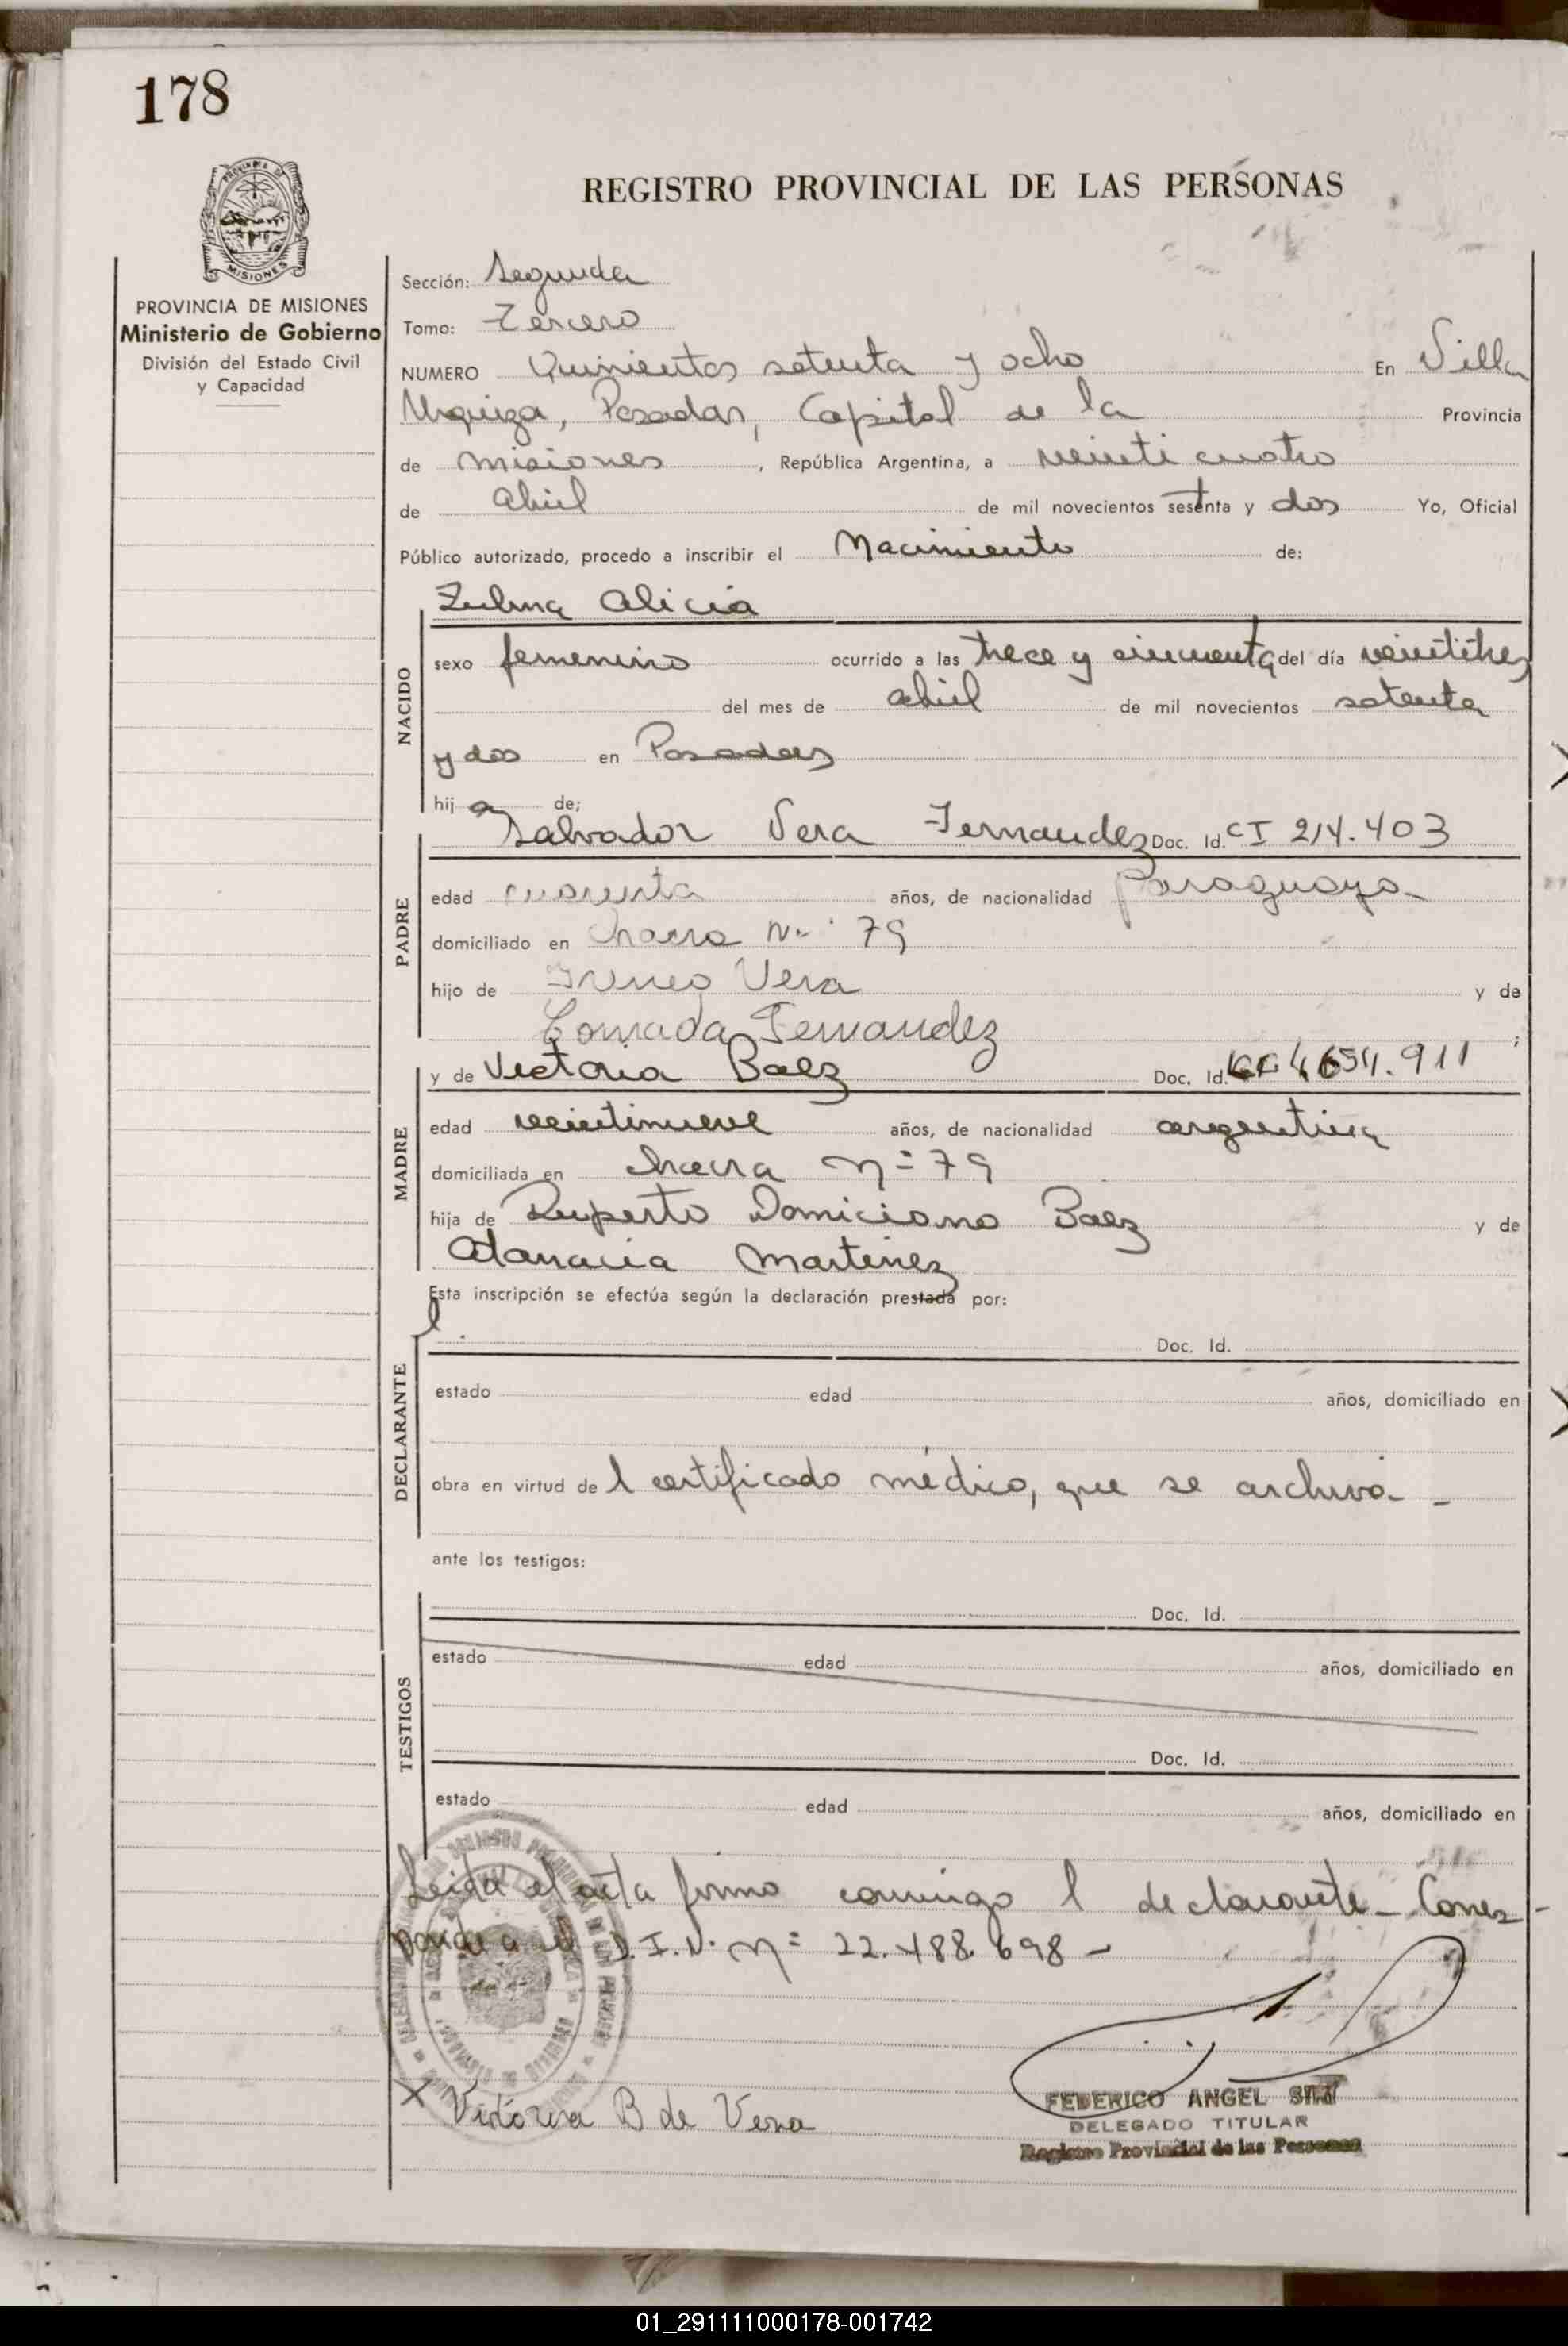 178
PROVINCIA DE
MISIONES
REGISTRO PROVINCIAL DE LAS PERSONAS
PROVINCIA DE MISIONES
Ministerio de Gobierno
División del Estado Civil
y Capacidad
Sección: Segunda
Tomo: Tercero
NUMERO Quinientos setenta y ocho En Villa
Urquiza, Posadas, Capital de la Provincia
de Misiones, República Argentina, a veinti cuatro
de abril de mil novecientos setenta y dos Yo, Oficial
Público autorizado, procedo a inscribir el Nacimiento de:
Zulma Alicia
NACIDO
sexo femenino ocurrido a las trece y cincuenta del día veintitres
del mes de abril de mil novecientos setenta
y dos en Posadas
hija de;
Salvador Vera Fernandez Doc. Id. CI 214.403
PADRE
edad cuarenta años, de nacionalidad Paraguaya
domiciliado en Chacra Nº 79
hijo de Irineo Vera y de
Conrada Fernandez ;
y de Victoria Baez Doc. Id. 4.654.911
MADRE
edad veintinueve años, de nacionalidad argentina
domiciliada en chacra Nº 79
hija de Ruperto Domiciano Baez y de
Atanacia Martinez
Esta inscripción se efectúa según la declaración prestada por:
DECLARANTE
Doc. Id.
estado edad años, domiciliado en
obra en virtud del certificado médico, que se archiva.-
ante los testigos:
TESTIGOS
Doc. Id.
estado edad años, domiciliado en
Doc. Id.
estado edad años, domiciliado en
Leida el acta firma conmigo l declarante - Corres-
ponde a D.I.N. Nº 22.488.698 -
X Victoria B de Vera
FEDERICO ANGEL
DELEGADO TITULAR
Registro Provincial de las Personas
01_291111000178-001742